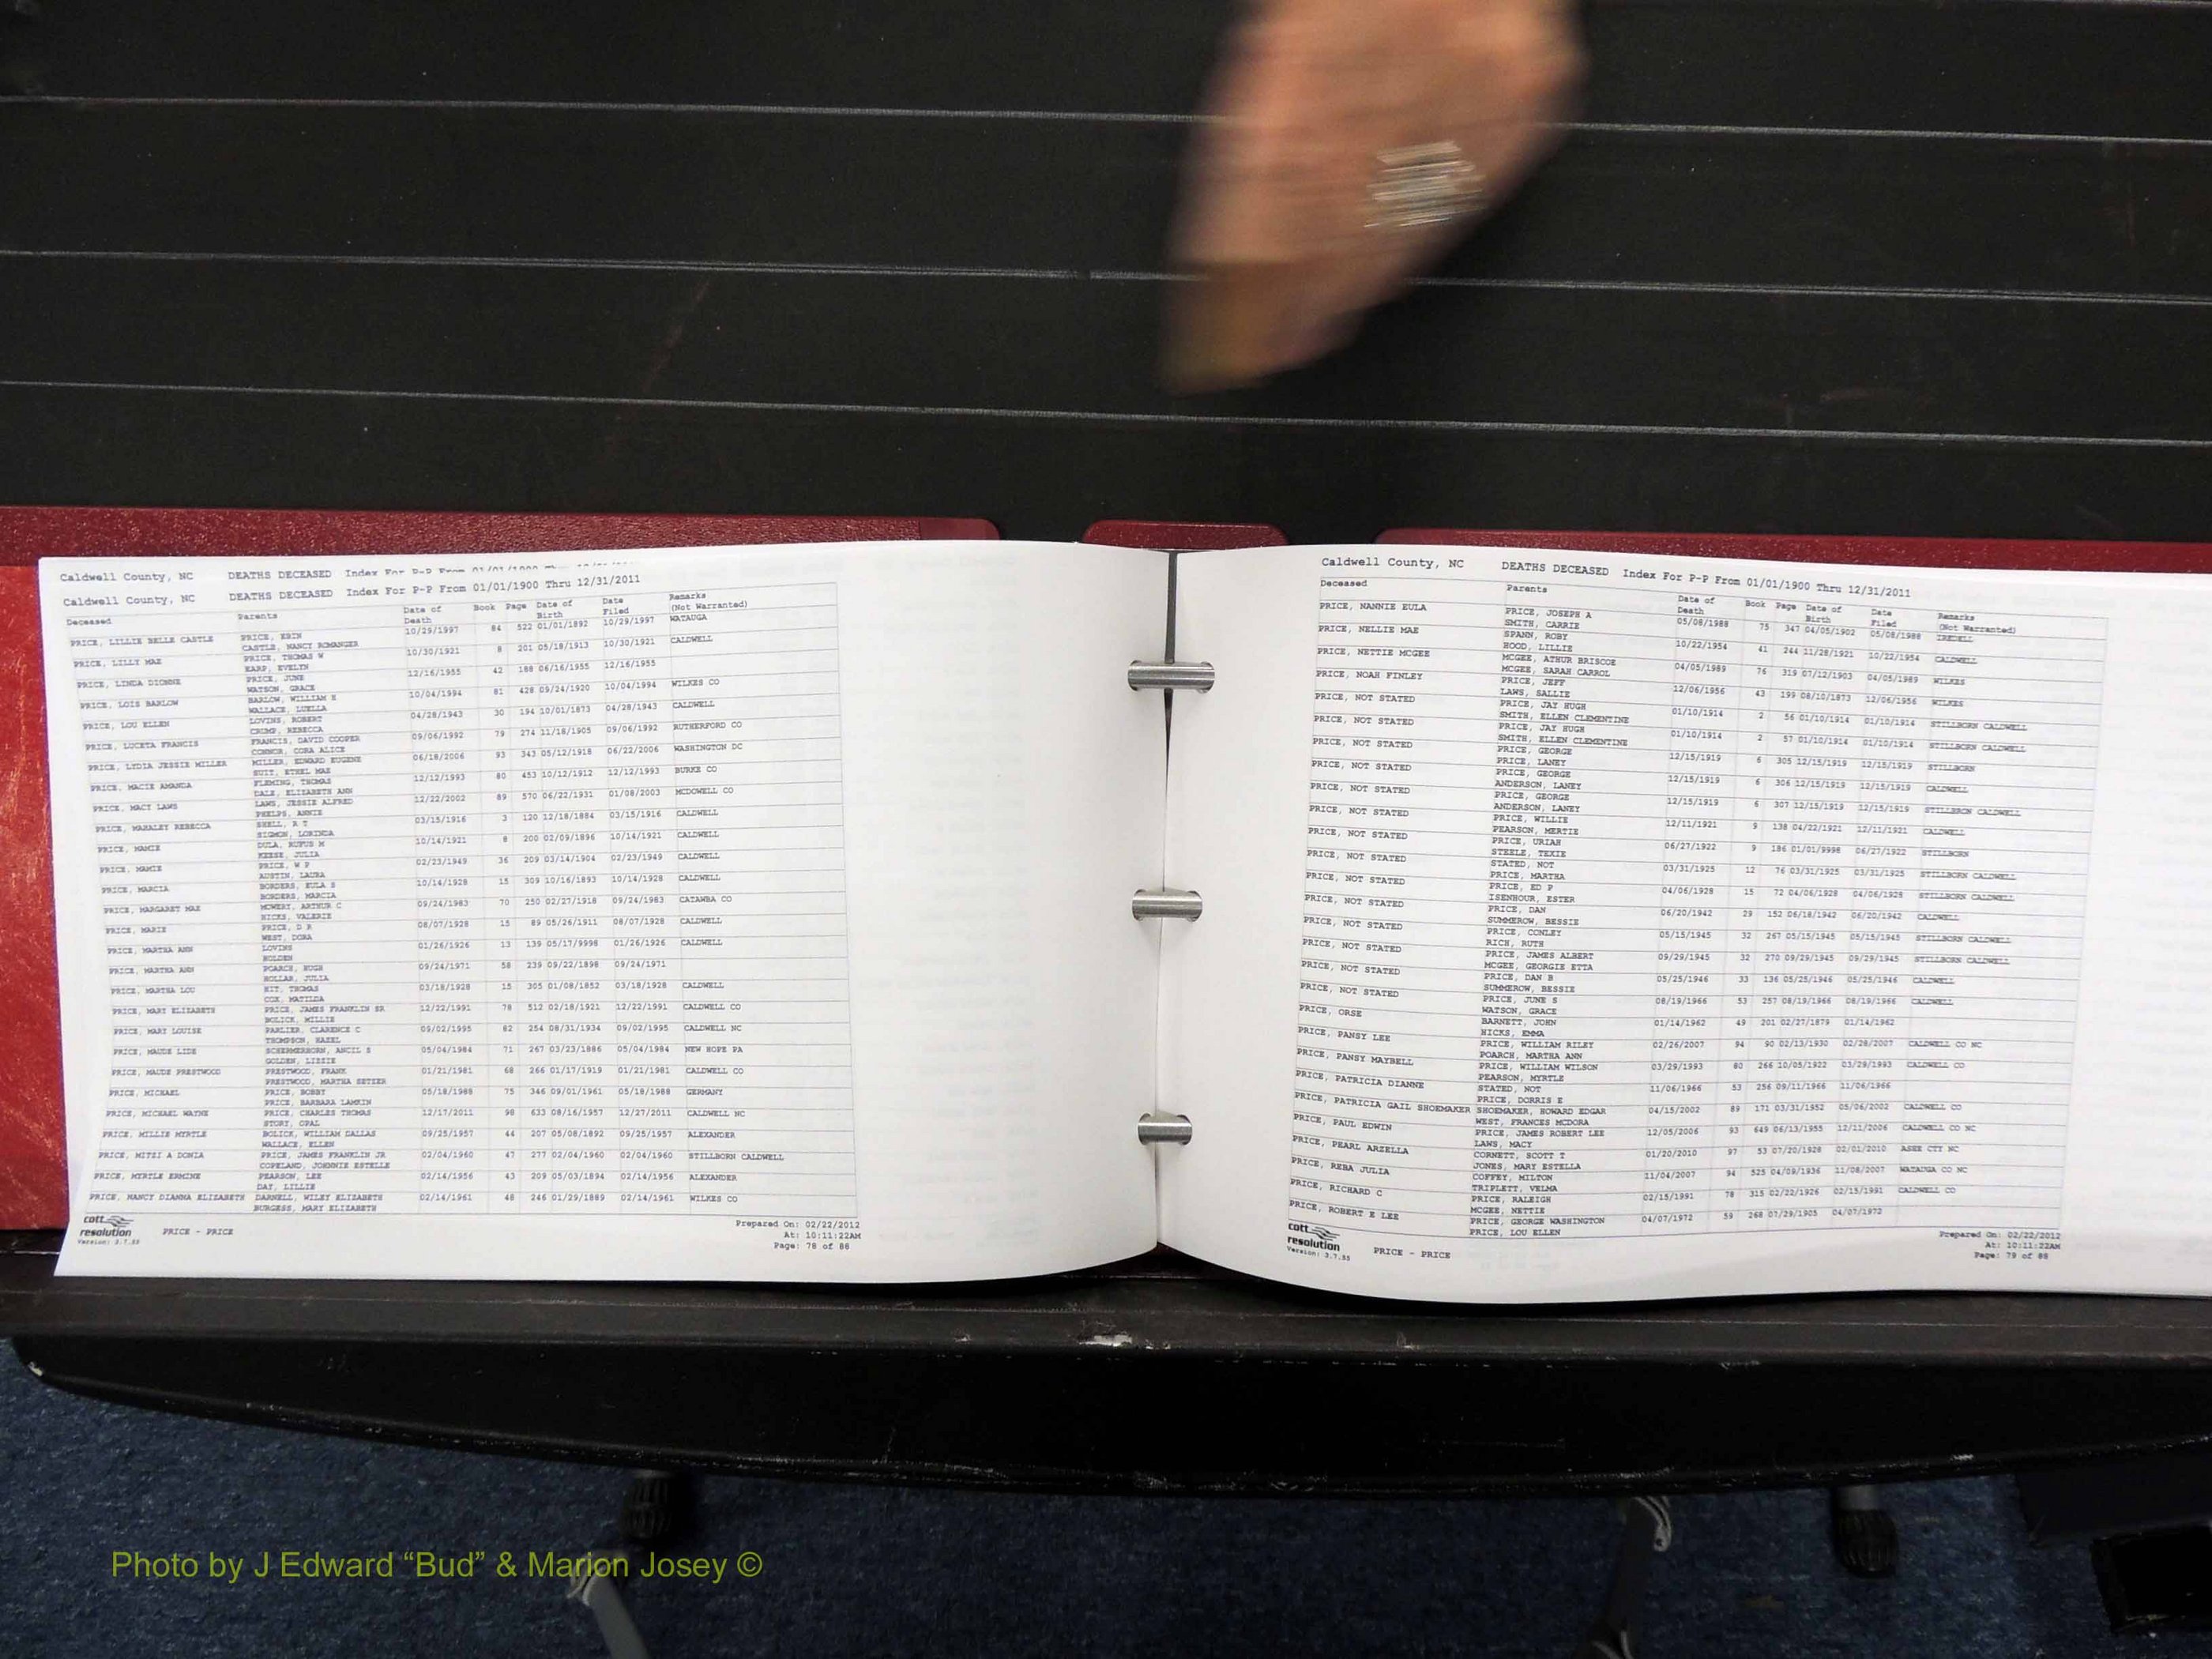 Caldwell County, NC DEATHS DECEASED Index For P-P From 01/01/1900
Caldwell County, NC DEATHS DECEASED Index For P-P From 01/01/1900 Thru 12/31/2011
Deceased Parents Date of Death Book Page Date of Birth Date Filed Remarks (Not Warranted)
PRICE, LILLIE BELLE CASTLE PRICE, ERIN 10/29/1997 84 522 01/01/1892 10/29/1997 WATAUGA
CASTLE, NANCY ROMANGER
PRICE, LILLY MAE PRICE, THOMAS W 10/30/1921 8 201 05/18/1913 10/30/1921 CALDWELL
EARP, EVELYN
PRICE, LINDA DIONNE PRICE, JUNE 12/16/1955 42 188 06/16/1955 12/16/1955
WATSON, GRACE
PRICE, LOIS BARLOW BARLOW, WILLIAM E 10/04/1994 81 428 09/24/1920 10/04/1994 WILKES CO
WALLACE, LUELLA
PRICE, LOU ELLEN LOVINS, ROBERT 04/28/1943 30 194 10/01/1873 04/28/1943 CALDWELL
CRUMP, REBECCA
PRICE, LUCETA FRANCIS FRANCIS, DAVID COOPER 09/06/1992 79 274 11/18/1905 09/06/1992 RUTHERFORD CO
CONNOR, CORA ALICE
PRICE, LYDIA JESSIE MILLER MILLER, EDWARD EUGENE 06/18/2006 93 343 05/12/1918 06/22/2006 WASHINGTON DC
SUIT, ETHEL MAE
PRICE, MACIE AMANDA FLEMING, THOMAS 12/12/1993 80 453 10/12/1912 12/12/1993 BURKE CO
DALE, ELIZABETH ANN
PRICE, MACY LAWS LAWS, JESSIE ALFRED 12/22/2002 89 570 06/22/1931 01/08/2003 MCDOWELL CO
PHELPS, ANNIE
PRICE, MAHALEY REBECCA SHELL, R T 03/15/1916 3 120 12/18/1884 03/15/1916 CALDWELL
SIGMON, LORINDA
PRICE, MAMIE DULA, RUFUS M 10/14/1921 8 200 02/09/1896 10/14/1921 CALDWELL
KEESE, JULIA
PRICE, MAMIE PRICE, W P 02/23/1949 36 209 03/14/1904 02/23/1949 CALDWELL
AUSTIN, LAURA
PRICE, MARCIA BORDERS, EULA S 10/14/1928 15 309 10/16/1893 10/14/1928 CALDWELL
BORDERS, MARCIA
PRICE, MARGARET MAE MOWERY, ARTHUR C 09/24/1983 70 250 02/27/1918 09/24/1983 CATAWBA CO
HICKS, VALERIE
PRICE, MARIE PRICE, D R 08/07/1928 15 89 05/26/1911 08/07/1928 CALDWELL
WEST, DORA
PRICE, MARTHA ANN LOVINS 01/26/1926 13 139 05/17/9998 01/26/1926 CALDWELL
HOLDEN
PRICE, MARTHA ANN POARCH, HUGH 09/24/1971 58 239 09/22/1898 09/24/1971
HOLLAR, JULIA
PRICE, MARTHA LOU KIT, THOMAS 03/18/1928 15 305 01/08/1852 03/18/1928 CALDWELL
COX, MATILDA
PRICE, MARY ELIZABETH PRICE, JAMES FRANKLIN SR 12/22/1991 78 512 02/18/1921 12/22/1991 CALDWELL CO
BOLICK, MILLIE
PRICE, MARY LOUISE PARLIER, CLARENCE C 09/02/1995 82 254 08/31/1934 09/02/1995 CALDWELL NC
THOMPSON, HAZEL
PRICE, MAUDE LIDE SCHERMERHORN, ANCIL S 05/04/1984 71 267 03/23/1886 05/04/1984 NEW HOPE PA
GOLDEN, LIZZIE
PRICE, MAUDE PRESTWOOD PRESTWOOD, FRANK 01/21/1981 68 266 01/17/1919 01/21/1981 CALDWELL CO
PRESTWOOD, MARTHA SETZER
PRICE, MICHAEL PRICE, BOBBY 05/18/1988 75 346 09/01/1961 05/18/1988 GERMANY
PRICE, BARBARA LAMKIN
PRICE, MICHAEL WAYNE PRICE, CHARLES THOMAS 12/17/2011 98 633 08/16/1957 12/27/2011 CALDWELL NC
STORY, OPAL
PRICE, MILLIE MYRTLE BOLICK, WILLIAM DALLAS 09/25/1957 44 207 05/08/1892 09/25/1957 ALEXANDER
WALLACE, ELLEN
PRICE, MITSI A DONIA PRICE, JAMES FRANKLIN JR 02/04/1960 47 277 02/04/1960 02/04/1960 STILLBORN CALDWELL
COPELAND, JOHNNIE ESTELLE
PRICE, MYRTLE ERMINE PEARSON, LEE 02/14/1956 43 209 05/03/1894 02/14/1956 ALEXANDER
DAY, LILLIE
PRICE, NANCY DIANNA ELIZABETH DARNELL, WILEY ELIZABETH 02/14/1961 48 246 01/29/1889 02/14/1961 WILKES CO
BURGESS, MARY ELIZABETH
cott resolution
Version: 3.7.55
PRICE - PRICE
Prepared On: 02/22/2012
At: 10:11:22AM
Page: 78 of 88
Caldwell County, NC DEATHS DECEASED Index For P-P From 01/01/1900 Thru 12/31/2011
Deceased Parents Date of Death Book Page Date of Birth Date Filed Remarks (Not Warranted)
PRICE, NANNIE EULA PRICE, JOSEPH A 05/08/1988 75 347 04/05/1902 05/08/1988 IREDELL
SMITH, CARRIE
PRICE, NELLIE MAE SPANN, ROBY 10/22/1954 41 244 11/28/1921 10/22/1954 CALDWELL
HOOD, LILLIE
PRICE, NETTIE MCGEE MCGEE, ATHUR BRISCOE 04/05/1989 76 319 07/12/1903 04/05/1989 WILKES
MCGEE, SARAH CARROL
PRICE, NOAH FINLEY PRICE, JEFF 12/06/1956 43 199 08/10/1873 12/06/1956 WILKES
LAWS, SALLIE
PRICE, NOT STATED PRICE, JAY HUGH 01/10/1914 2 56 01/10/1914 01/10/1914 STILLBORN CALDWELL
SMITH, ELLEN CLEMENTINE
PRICE, NOT STATED PRICE, JAY HUGH 01/10/1914 2 57 01/10/1914 01/10/1914 STILLBORN CALDWELL
SMITH, ELLEN CLEMENTINE
PRICE, NOT STATED PRICE, GEORGE 12/15/1919 6 305 12/15/1919 12/15/1919 STILLBORN
PRICE, LANEY
PRICE, NOT STATED PRICE, GEORGE 12/15/1919 6 306 12/15/1919 12/15/1919 CALDWELL
ANDERSON, LANEY
PRICE, NOT STATED PRICE, GEORGE 12/15/1919 6 307 12/15/1919 12/15/1919 STILLBRON CALDWELL
ANDERSON, LANEY
PRICE, NOT STATED PRICE, WILLIE 12/11/1921 9 138 04/22/1921 12/11/1921 CALDWELL
PEARSON, MERTIE
PRICE, NOT STATED PRICE, URIAH 06/27/1922 9 186 01/01/9998 06/27/1922 STILLBORN
STEELE, TEXIE
PRICE, NOT STATED STATED, NOT 03/31/1925 12 76 03/31/1925 03/31/1925 STILLBORN CALDWELL
PRICE, MARTHA
PRICE, NOT STATED PRICE, ED P 04/06/1928 15 72 04/06/1928 04/06/1928 STILLBORN CALDWELL
ISENHOUR, ESTER
PRICE, NOT STATED PRICE, DAN 06/20/1942 29 152 06/18/1942 06/20/1942 CALDWELL
SUMMEROW, BESSIE
PRICE, NOT STATED PRICE, CONLEY 05/15/1945 32 267 05/15/1945 05/15/1945 STILLBORN CALDWELL
RICH, RUTH
PRICE, NOT STATED PRICE, JAMES ALBERT 09/29/1945 32 270 09/29/1945 09/29/1945 STILLBORN CALDWELL
MCGEE, GEORGIE ETTA
PRICE, NOT STATED PRICE, DAN B 05/25/1946 33 136 05/25/1946 05/25/1946 CALDWELL
SUMMEROW, BESSIE
PRICE, NOT STATED PRICE, JUNE S 08/19/1966 53 257 08/19/1966 08/19/1966 CALDWELL
WATSON, GRACE
PRICE, ORSE BARNETT, JOHN 01/14/1962 49 201 02/27/1879 01/14/1962
HICKS, EMMA
PRICE, PANSY LEE PRICE, WILLIAM RILEY 02/26/2007 94 90 02/13/1930 02/28/2007 CALDWELL CO NC
POARCH, MARTHA ANN
PRICE, PANSY MAYBELL PRICE, WILLIAM WILSON 03/29/1993 80 266 10/05/1922 03/29/1993 CALDWELL CO
PEARSON, MYRTLE
PRICE, PATRICIA DIANNE STATED, NOT 11/06/1966 53 256 09/11/1966 11/06/1966
PRICE, DORRIS E
PRICE, PATRICIA GAIL SHOEMAKER SHOEMAKER, HOWARD EDGAR 04/15/2002 89 171 03/31/1952 05/06/2002 CALDWELL CO
WEST, FRANCES MCDORA
PRICE, PAUL EDWIN PRICE, JAMES ROBERT LEE 12/05/2006 93 649 06/13/1955 12/11/2006 CALDWELL CO NC
LAWS, MACY
PRICE, PEARL ARZELLA CORNETT, SCOTT T 01/20/2010 97 53 07/20/1928 02/01/2010 ASHE CTY NC
JONES, MARY ESTELLA
PRICE, REBA JULIA COFFEY, MILTON 11/04/2007 94 525 04/09/1936 11/08/2007 WATAUGA CO NC
TRIPLETT, VELMA
PRICE, RICHARD C PRICE, RALEIGH 02/15/1991 78 315 02/22/1926 02/15/1991 CALDWELL CO
MCGEE, NETTIE
PRICE, ROBERT E LEE PRICE, GEORGE WASHINGTON 04/07/1972 59 268 07/29/1905 04/07/1972
PRICE, LOU ELLEN
cott resolution
Version: 3.7.55
PRICE - PRICE
Prepared On: 02/22/2012
At: 10:11:22AM
Page: 79 of 88
Photo by J Edward “Bud” & Marion Josey ©